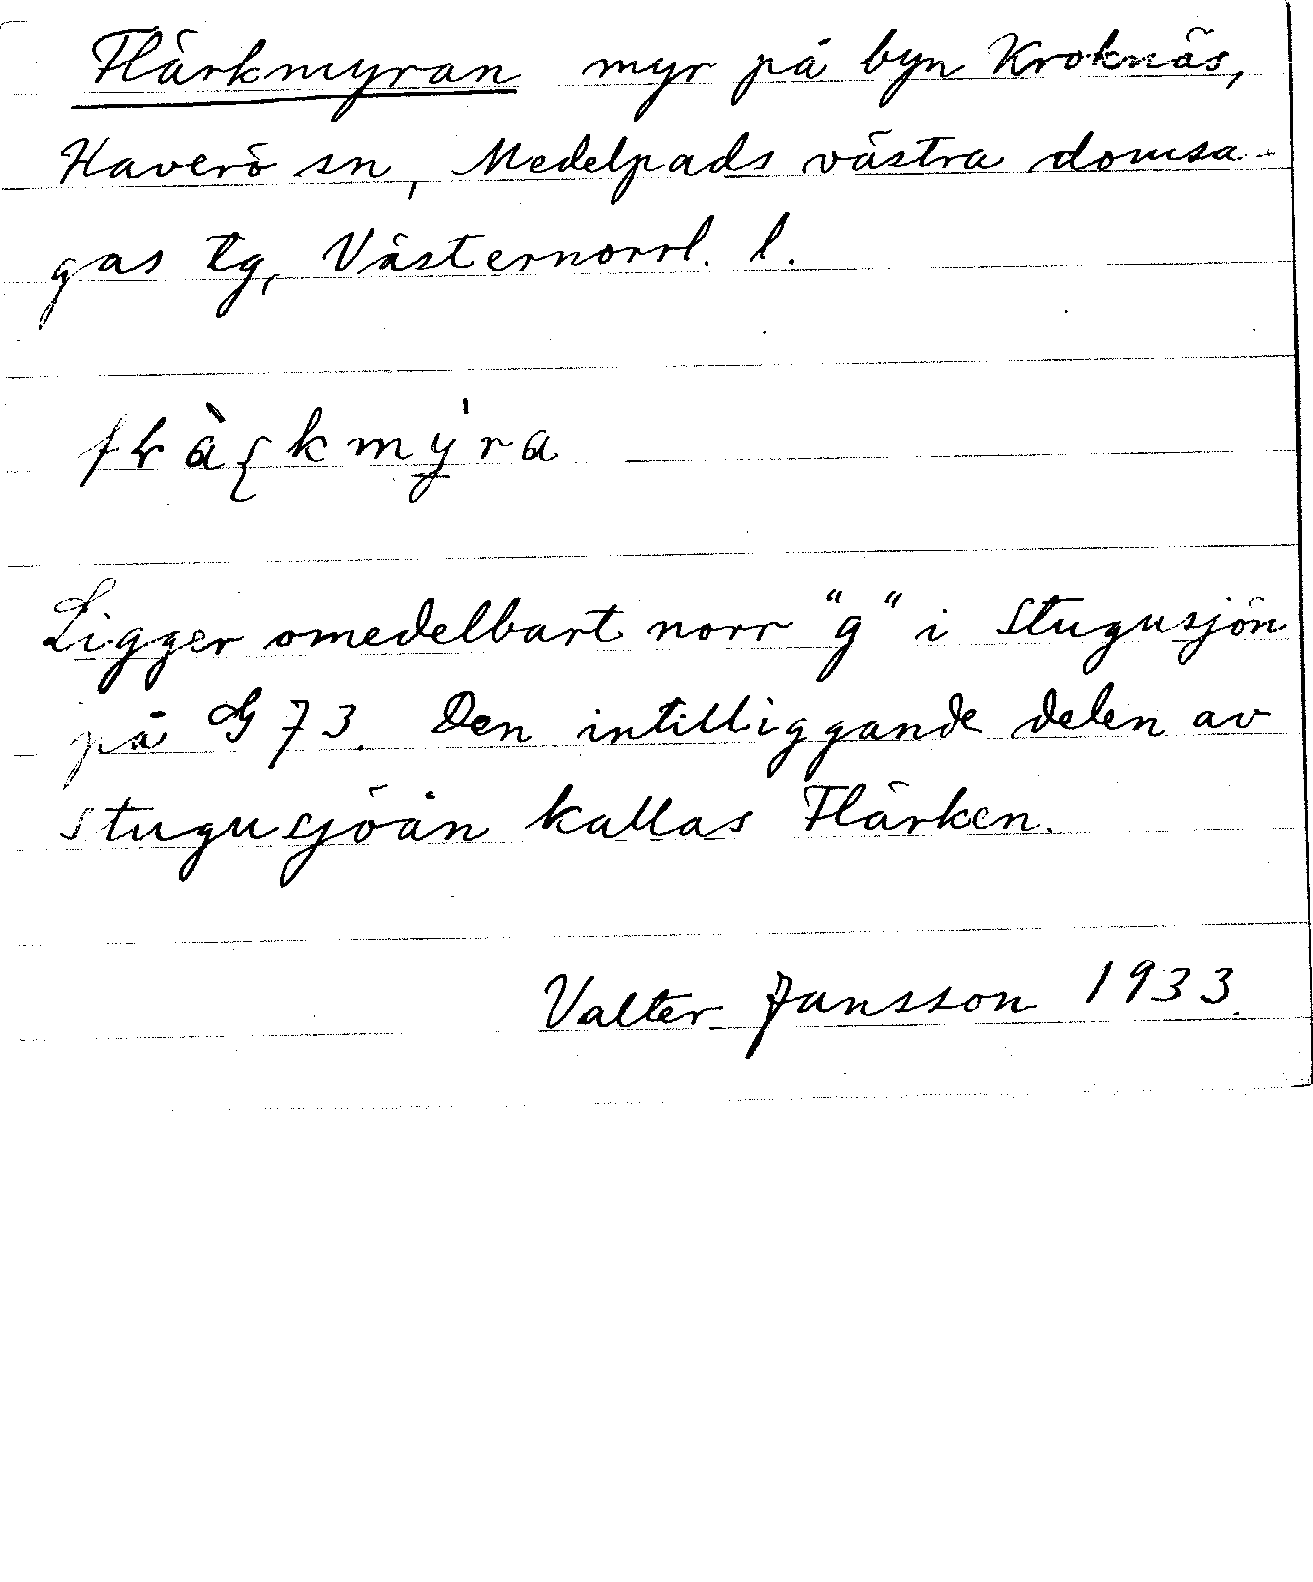 Flärkmyran myr på byn Kroknäs,
Haverö sn, Medelpads västra domsa-
gas tg, Västernorrl. l.
Ligger omedelbart norr "g" i Stugusjön
på G 73. Den intilliggande delen av
Stugusjöån kallas Flärken.
Valter Jansson 1933.